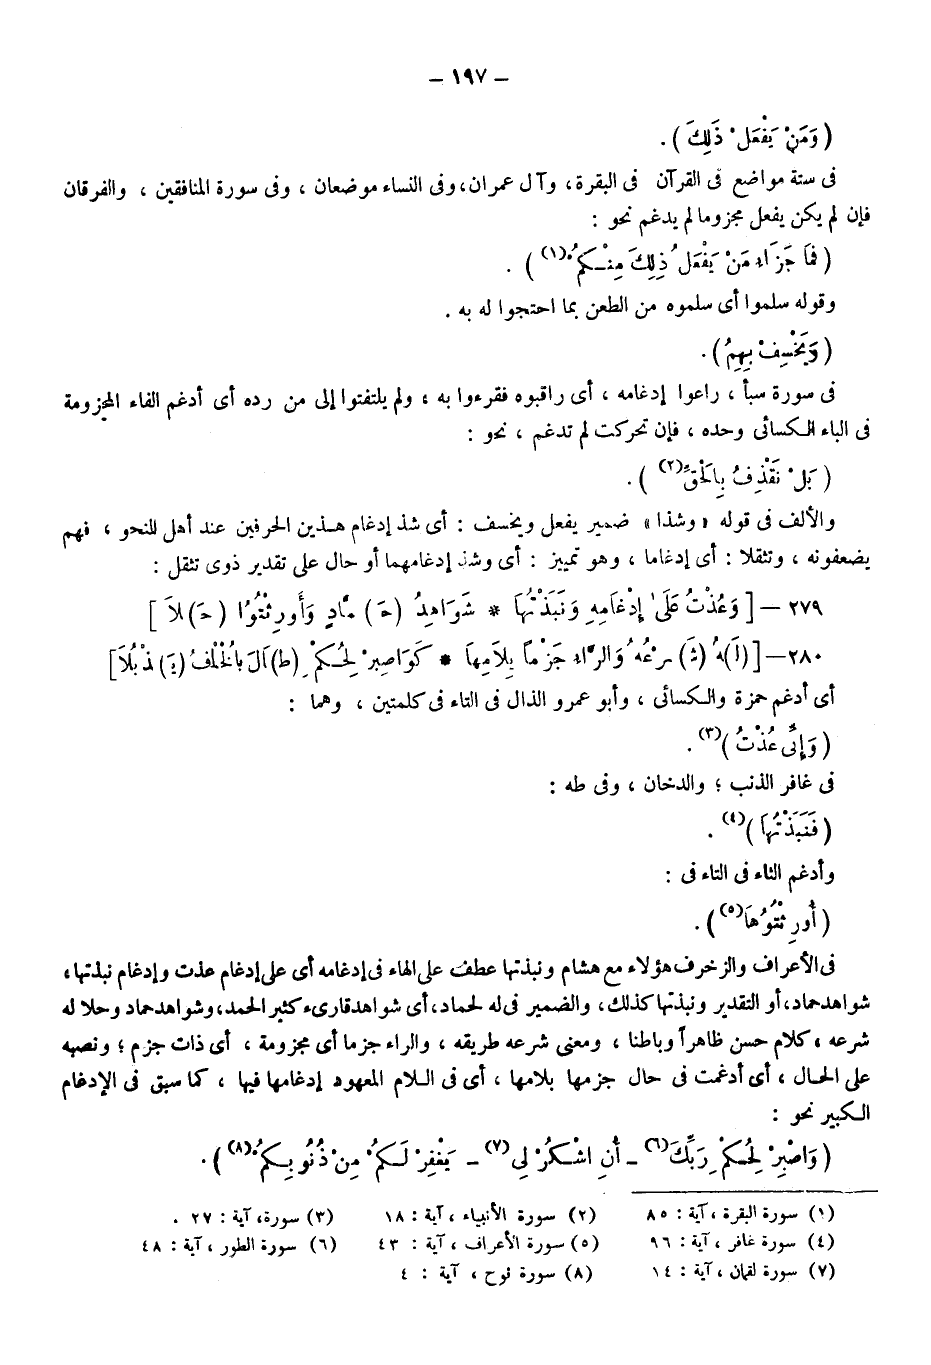 – ١٩٧ –
( وَمَنْ يَفْعَلْ ذَلِكَ ) .
فى ستة مواضع فى القرآن فى البقرة، وآل عمران، وفى النساء موضعان ، وفى سورة المنافقين ، والفرقان
فإن لم يكن يفعل مجزوما لم يدغم نحو :
( فَمَا جَزَاء مَنْ يَفْعَلُ ذٰلِكَ مِنْكُمْ(١) ) .
وقوله سلموا أى سلموه من الطعن بما احتجوا له به .
( وَيَخْسِفْ بِهِمُ ) .
فى سورة سبأ ، راعوا إدغامه ، أى راقبوه فقرءوا به ، ولم يلتفتوا إلى من رده أى أدغم الفاء المجزومة
فى الباء الكسائى وحده ، فإن تحركت لم تدغم ، نحو :
( بَلْ نَقْذِفُ بِالْحَقِّ(٢) ) .
والألف فى قوله «وشذا» ضمير يفعل ويخسف : أى شذ إدغام هذين الحرفين عند أهل للنحو ، فهم
يضعفونه ، وتثقلا : أى إدغاما ، وهو تمييز : أى وشذ إدغامهما أو حال على تقدير ذوى تثقل :
٢٧٩ – [ وَعُذْتُ عَلَى إِدْغَامِهِ وَنَبَذْتُهَا * شَوَاهِدُ (حَ) مَّادٍ وَأُورِثْتُمُوا (حَ) لاَ ]
٢٨٠– [(لَ)هُ (شَ) رْعُهُ وَالرَّاء جَزْمًا بِلاَمِهَا * كَوَاصْبِرْ لِحُكْمِ (طَ)الَ بِالْخُلْفِ (يَ) ذْبُلاَ]
أى أدغم حمزة والكسائى ، وأبو عمرو الذال فى التاء فى كلمتين ، وهما :
( وَإِنِّى عُذْتُ )(٣) .
فى غافر الذنب ؛ والدخان ، وفى طه :
( فَنَبَذْتُهَا )(٤) .
وأدغم الثاء فى التاء فى :
( أُورِثْتُمُوُهَا(٥) ) .
فى الأعراف والزخرف هؤلاء مع هشام ونبذتها عطف على الهاء فى إدغامه أى على إدغام عذت وإدغام نبذتها،
شواهدحماد، أو التقدير ونبذتها كذلك، والضمير فى له لحماد، أى شواهدقارىء كثير الحمد، وشواهدحماد وحلا له
شرعه ، كلام حسن ظاهراً وباطنا ، ومعنى شرعه طريقه ، والراء جزما أى مجزومة ، أى ذات جزم ؛ ونصبه
على الحال ، أى أدغمت فى حال جزمها بلامها ، أى فى اللام المعهود إدغامها فيها ، كما سبق فى الإدغام
الكبير نحو :
( وَاصْبِرْ لِحُكْمِ رَبِّكَ(٦) – أَنِ اشْكُرْ لِى(٧) – يَغْفِرْ لَكُمْ مِنْ ذُنُوبِكُمْ(٨) ) .
(١) سورة البقرة ، آية : ٨٥ (٢) سورة الأنبياء ، آية : ١٨ (٣) سورة، آية : ٢٧ .
(٤) سورة غافر ، آية : ٩٦ (٥) سورة الأعراف ، آية : ٤٣ (٦) سورة الطور ، آية : ٤٨
(٧) سورة لقمان ، آية : ١٤ (٨) سورة نوح ، آية : ٤